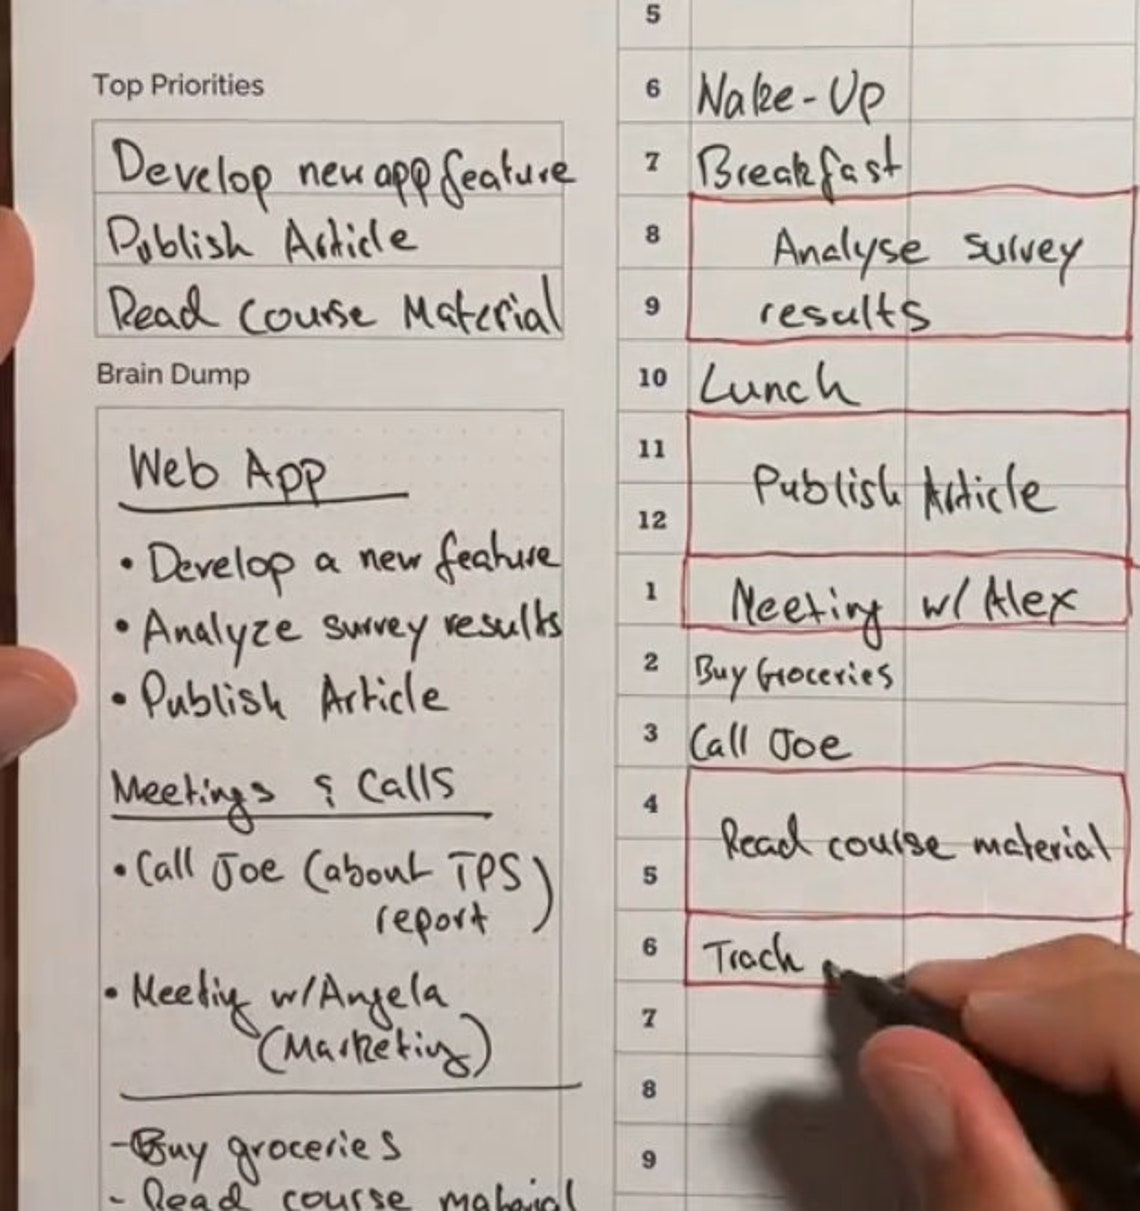 Top Priorities
Develop new app feature
Publish Article
Read Course Material
Brain Dump
Web App
• Develop a new feature
• Analyze survey results
• Publish Article
Meetings & Calls
• Call Joe (about TPS
report)
• Meeting w/Angela
(Marketing)
- Buy groceries
- Read course material
5
6 Wake-Up
7 Breakfast
8 Analyse survey
9 results
10 Lunch
11
Publish Article
12
1 Meeting w/ Alex
2 Buy Groceries
3 Call Joe
4
Read course material
5
6 Track
7
8
9